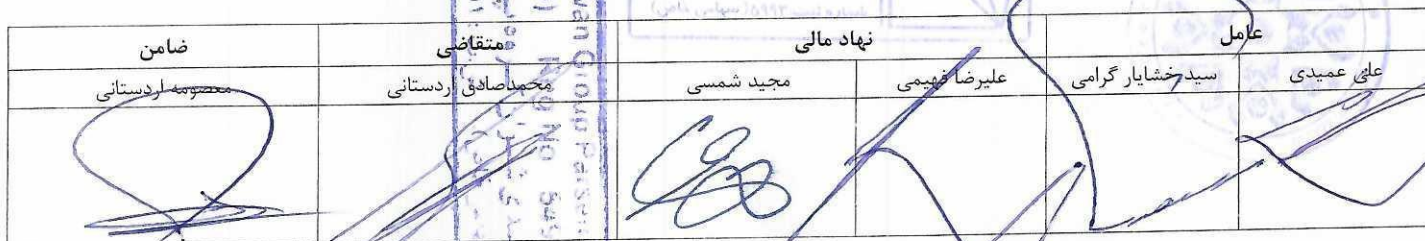 عامل نهاد مالی متقاضی ضامن
علی عمیدی سید خشایار گرامی علیرضا فهیمی مجید شمسی محمدصادق اردستانی معصومه اردستانی
Group Parsian
Reg No